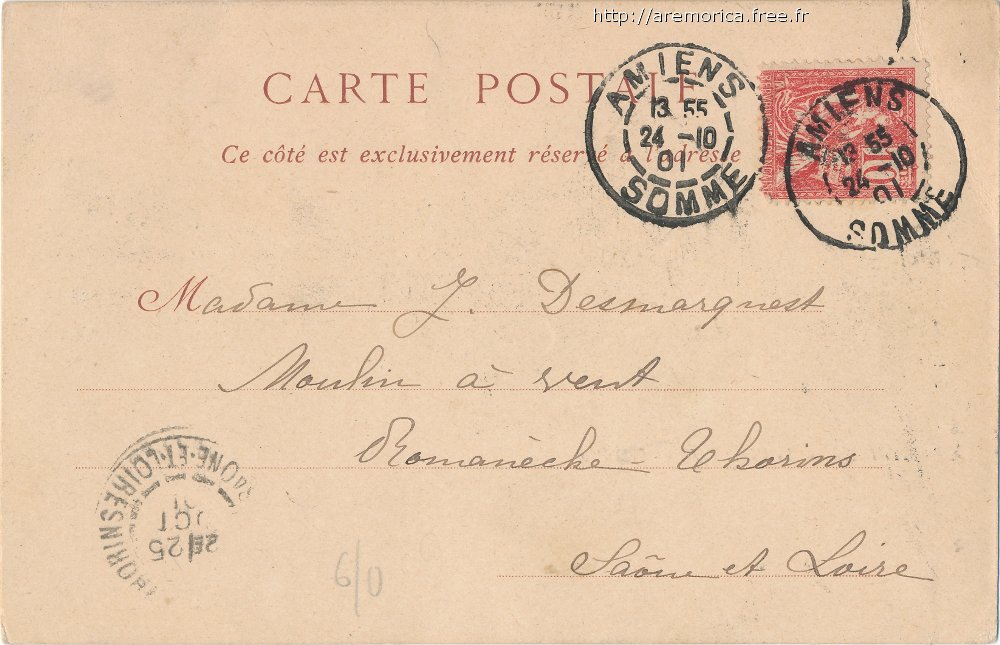 http://aremorica.free.fr
CARTE POSTALE
Ce côté est exclusivement réservé à l'adresse
AMIENS
13 55
24 -10
01
SOMME
AMIENS
13 55
24 -10
01
SOMME
10
Madame J. Desmarquest
Moulin à vent
Romanèche Thorins
Saône et Loire
SAONE-ET-LOIRE
THORINS
25
OCT
01
6/0